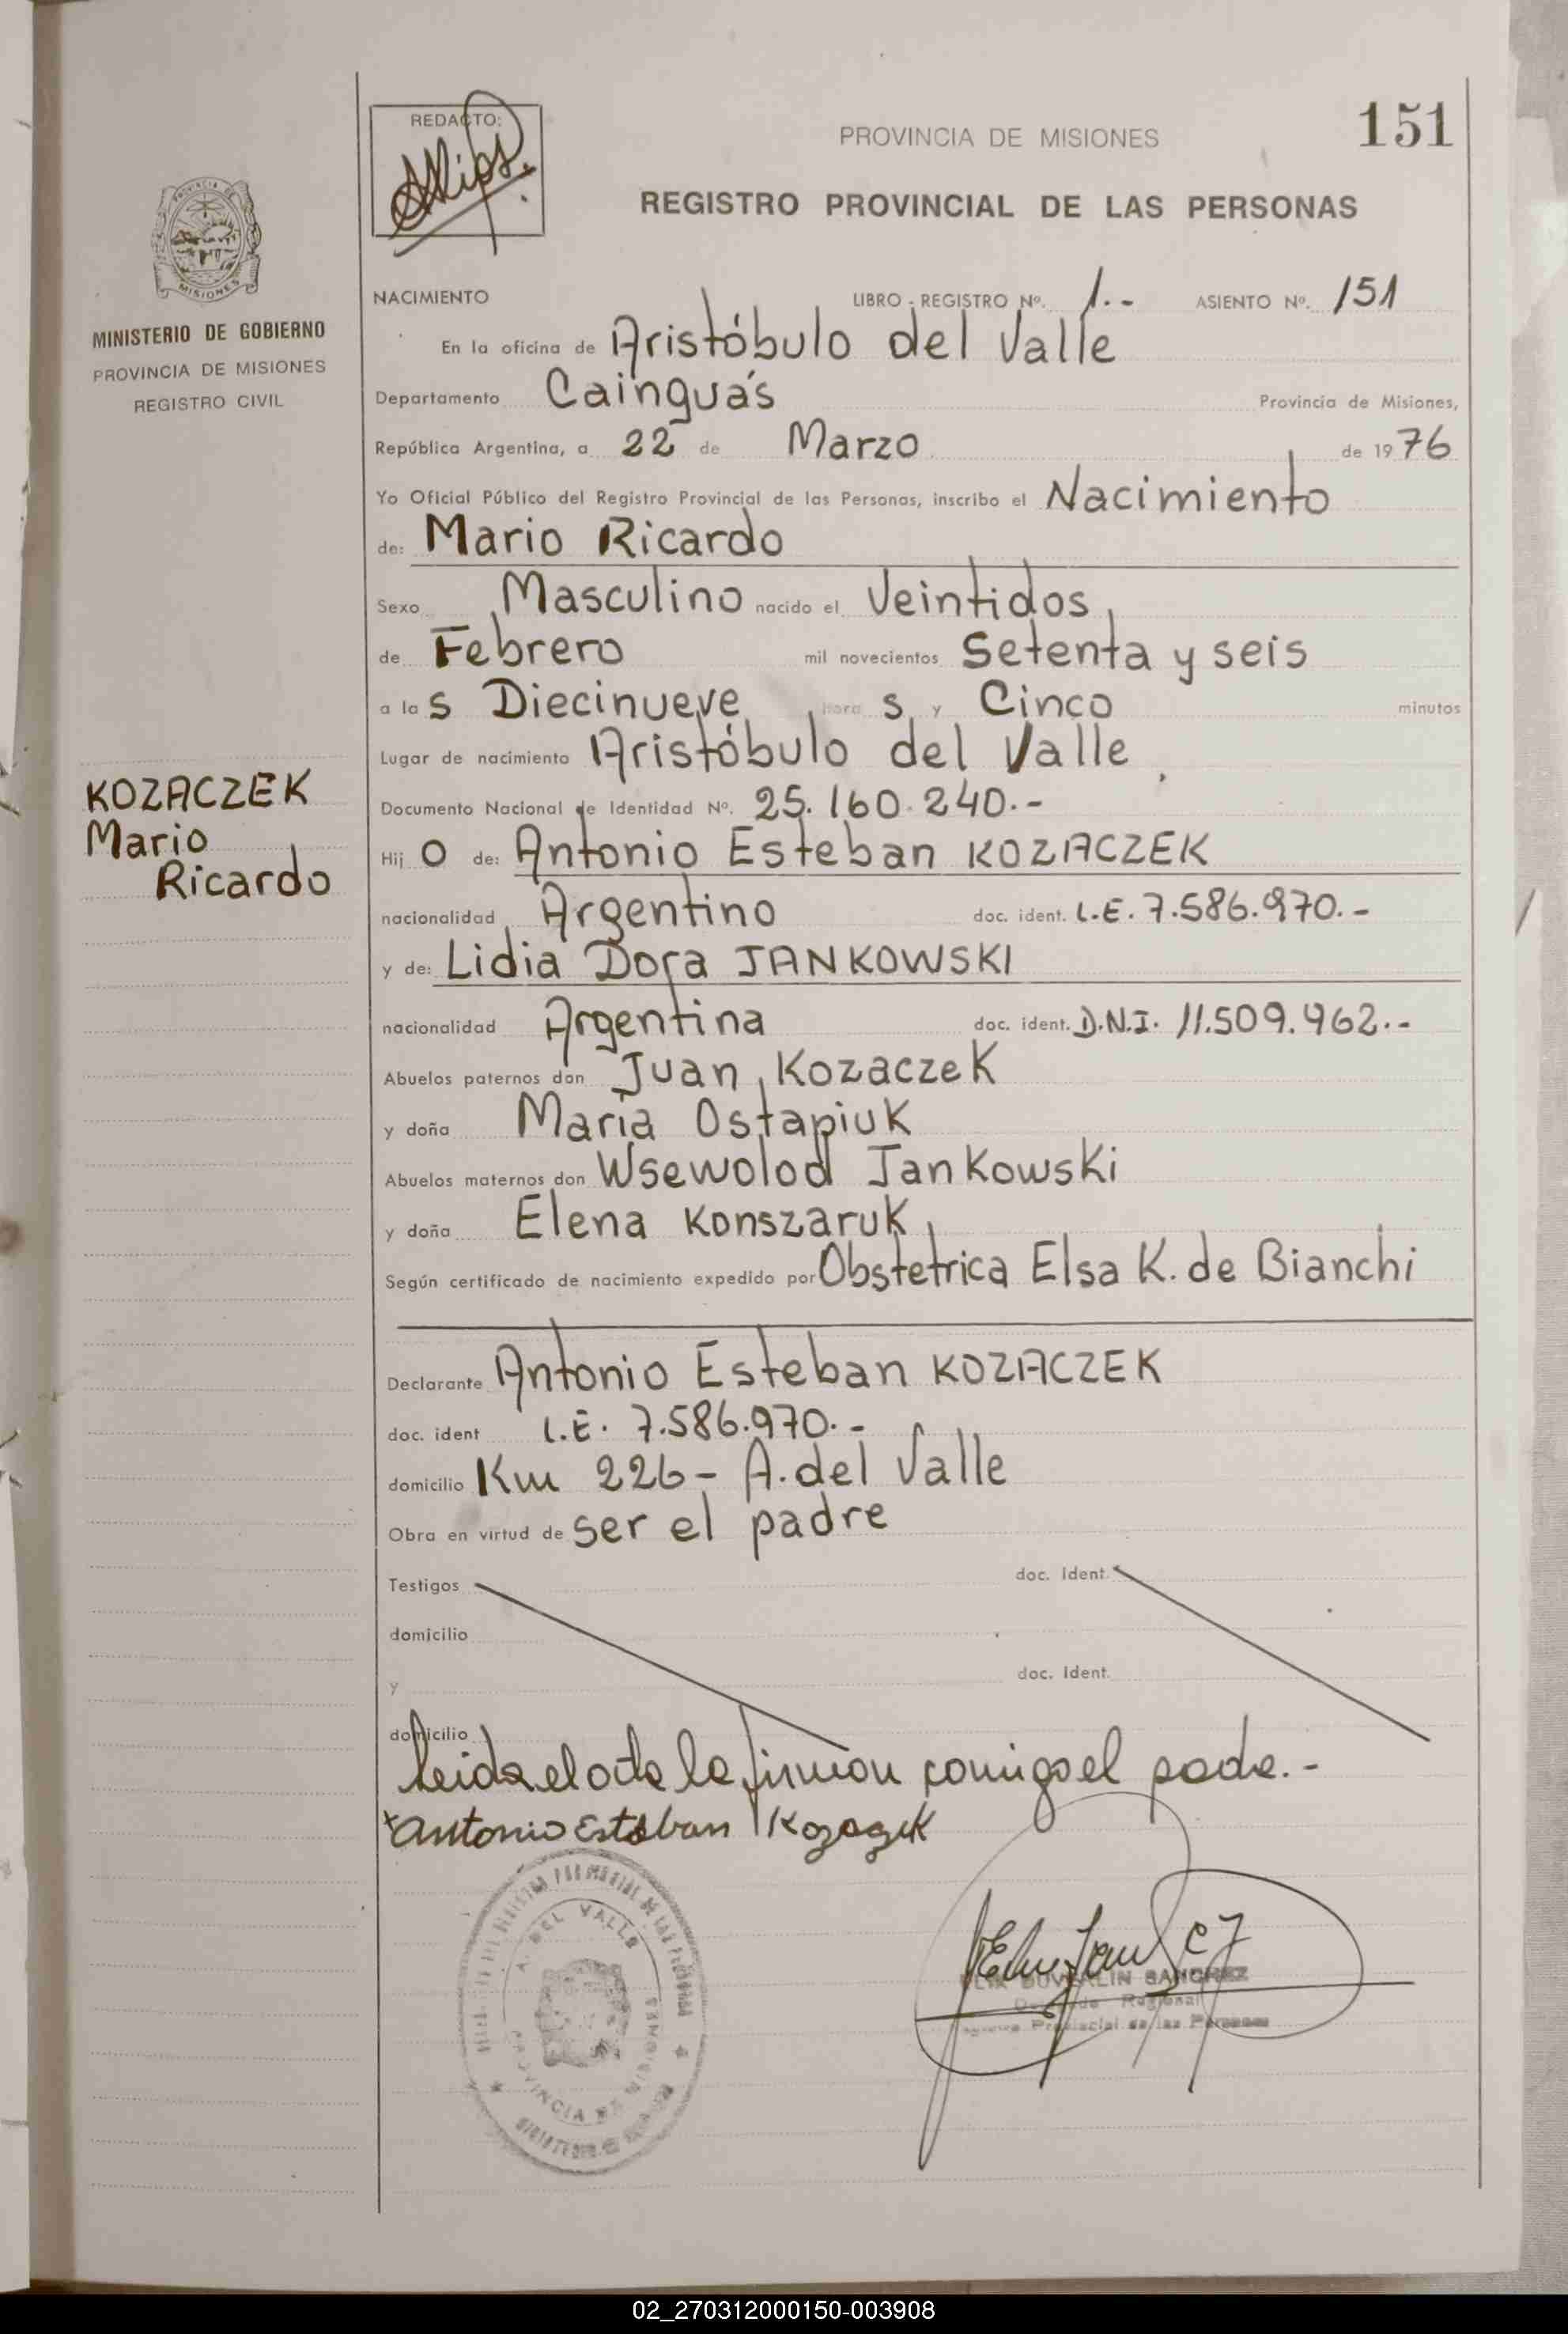 REDACTO:
PROVINCIA DE MISIONES
151
REGISTRO PROVINCIAL DE LAS PERSONAS
PROVINCIA DE
MISIONES
MINISTERIO DE GOBIERNO
PROVINCIA DE MISIONES
REGISTRO CIVIL
NACIMIENTO LIBRO - REGISTRO Nº. 1.- ASIENTO Nº. 151
En la oficina de Aristóbulo del Valle
Departamento Cainguás Provincia de Misiones,
República Argentina, a 22 de Marzo de 1976
Yo Oficial Público del Registro Provincial de las Personas, inscribo el Nacimiento
de: Mario Ricardo
Sexo Masculino nacido el Veintidos
de Febrero mil novecientos Setenta y seis
a las Diecinueve horas y Cinco minutos
Lugar de nacimiento Aristóbulo del Valle
KOZACZEK
Mario
Ricardo
Documento Nacional de Identidad Nº. 25.160.240.-
Hijo de: Antonio Esteban KOZACZEK
nacionalidad Argentino doc. ident. L.E. 7.586.970.-
y de: Lidia Dora JANKOWSKI
nacionalidad Argentina doc. ident. D.N.I. 11.509.962.-
Abuelos paternos don Juan Kozaczek
y doña María Ostapiuk
Abuelos maternos don Wsewolod Jankowski
y doña Elena Konszaruk
Según certificado de nacimiento expedido por Obstetrica Elsa K. de Bianchi
Declarante Antonio Esteban KOZACZEK
doc. ident L.E. 7.586.970.-
domicilio Km 226 - A. del Valle
Obra en virtud de ser el padre
Testigos doc. Ident.
domicilio
y doc. Ident.
domicilio
Leida el acta la firman comigo el padre.-
Antonio Esteban Kozazek
A. DEL VALLE
PROVINCIA DE MISIONES
SANCHEZ
Regional
Provincial de las Personas
02_270312000150-003908